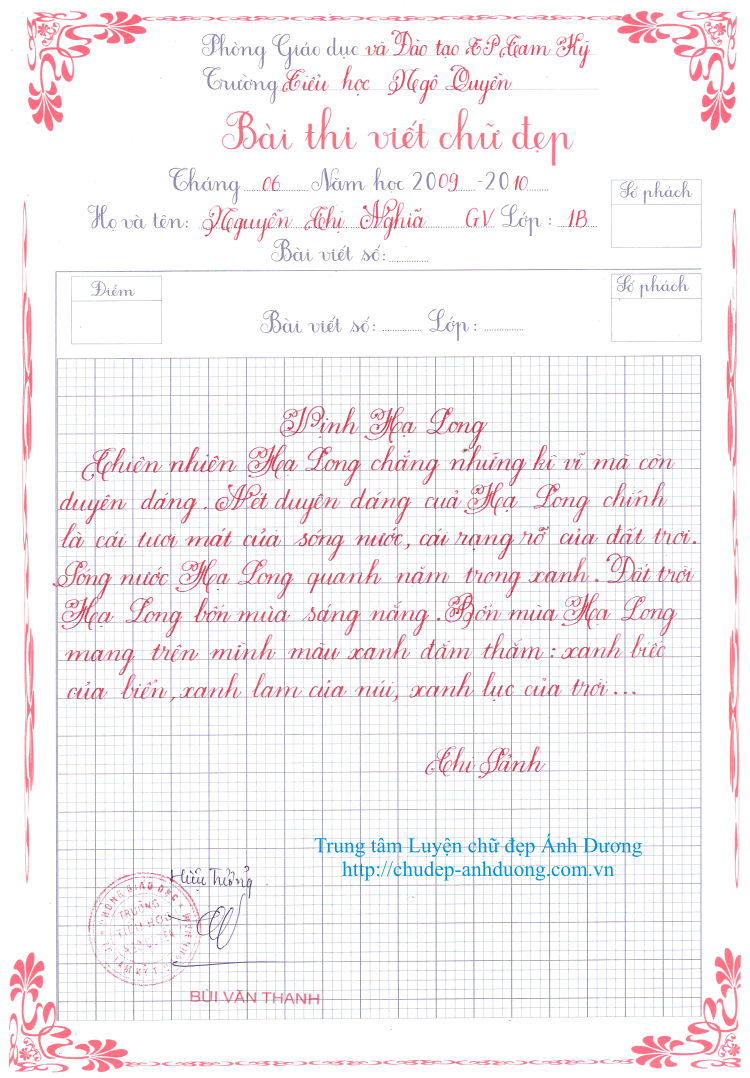 Phòng Giáo dục và Đào tạo TP Tam Kỳ
Trường Tiểu học Ngô Quyền
Bài thi viết chữ đẹp
Tháng 06 Năm học 2009 -2010
Số phách
Họ và tên: Nguyễn Thị Nghiã GV Lớp : 1B
Bài viết số:
Điểm
Số phách
Bài viết số: Lớp :
Vịnh Hạ Long
Thiên nhiên Hạ Long chẳng những kì vĩ mà còn
duyên dáng. Nét duyên dáng cuả Hạ Long chính
là cái tươi mát của sóng nước, cái rạng rỡ của đất trời.
Sóng nước Hạ Long quanh năm trong xanh. Đất trời
Hạ Long bốn mùa sáng nắng. Bốn mùa Hạ Long
mang trên mình màu xanh đằm thắm: xanh biếc
của biển, xanh lam của núi, xanh lục của trời...
Thi Sảnh
Trung tâm Luyện chữ đẹp Ánh Dương
http://chudep-anhduong.com.vn
Hiệu Trưởng
PHÒNG GIÁO DỤC
TRƯỜNG
TIỂU HỌC
BÙI VĂN THANH